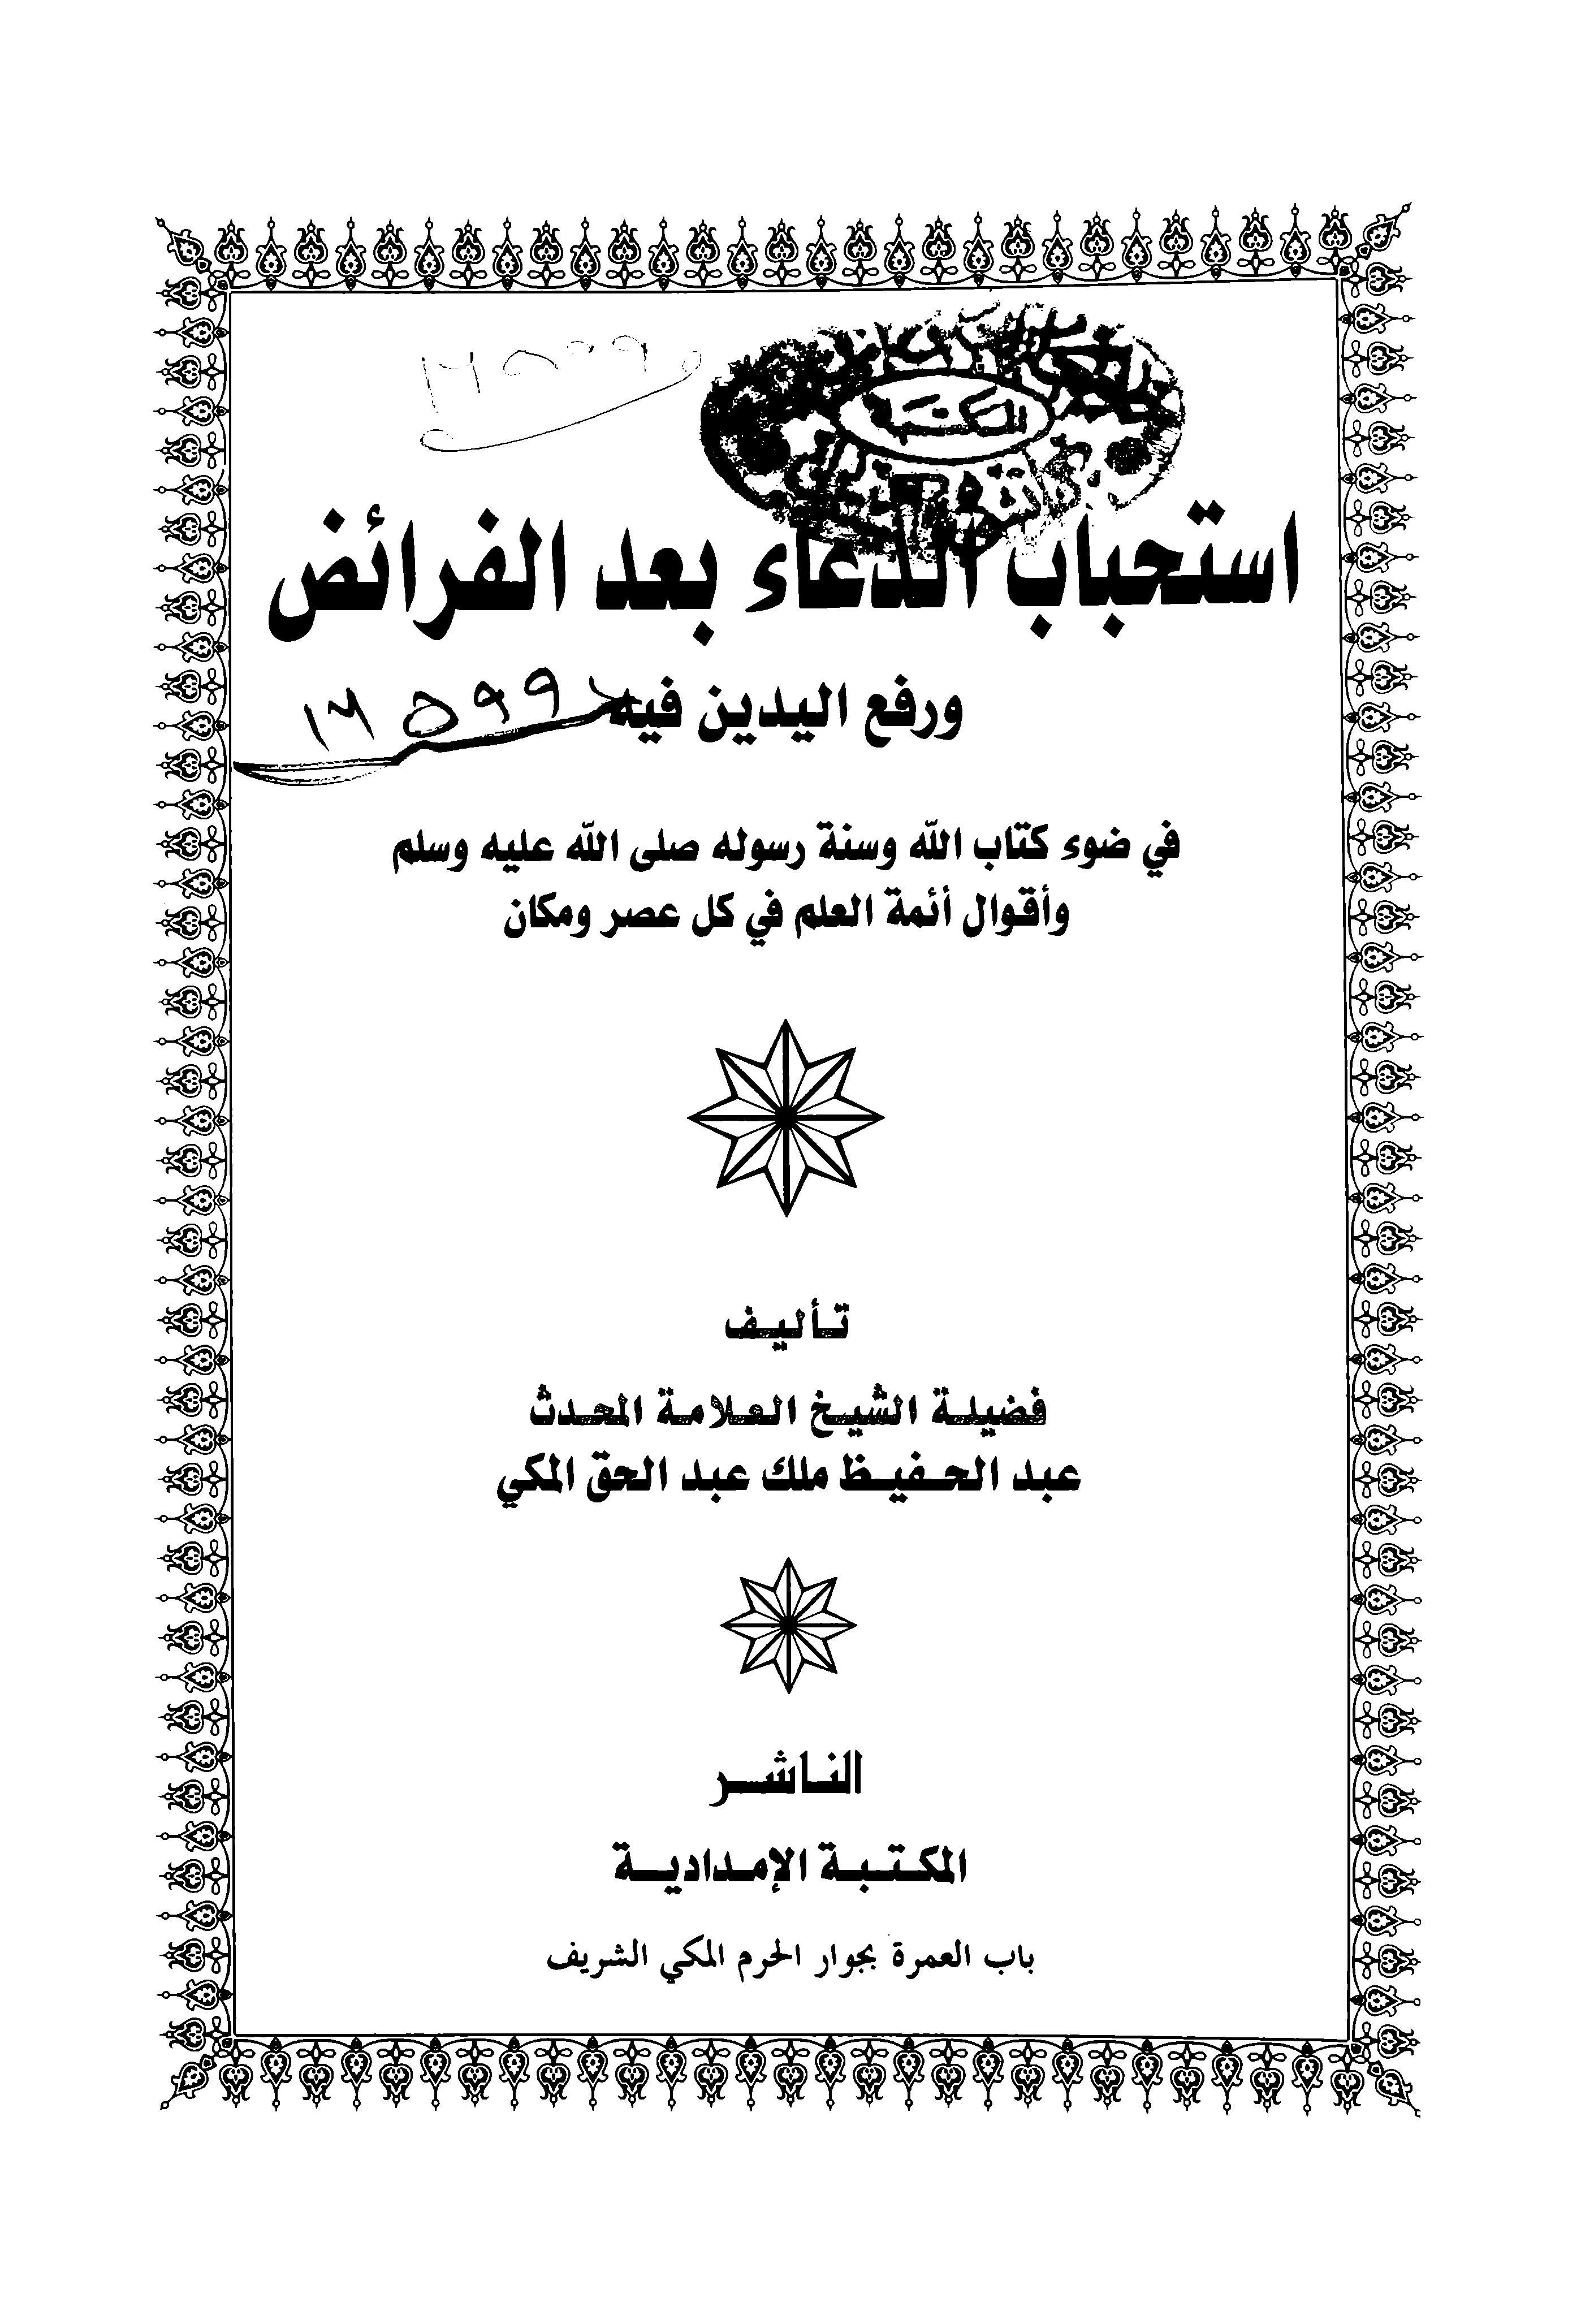 المكتبة
استحباب الدعاء بعد الفرائض
ورفع اليدين فيه
في ضوء كتاب الله وسنة رسوله صلى الله عليه وسلم
وأقوال أئمة العلم في كل عصر ومكان
تأليف
فضيلة الشيخ العلامة المحدث
عبد الحفيظ ملك عبد الحق المكي
الناشر
المكتبة الإمدادية
باب العمرة بجوار الحرم المكي الشريف